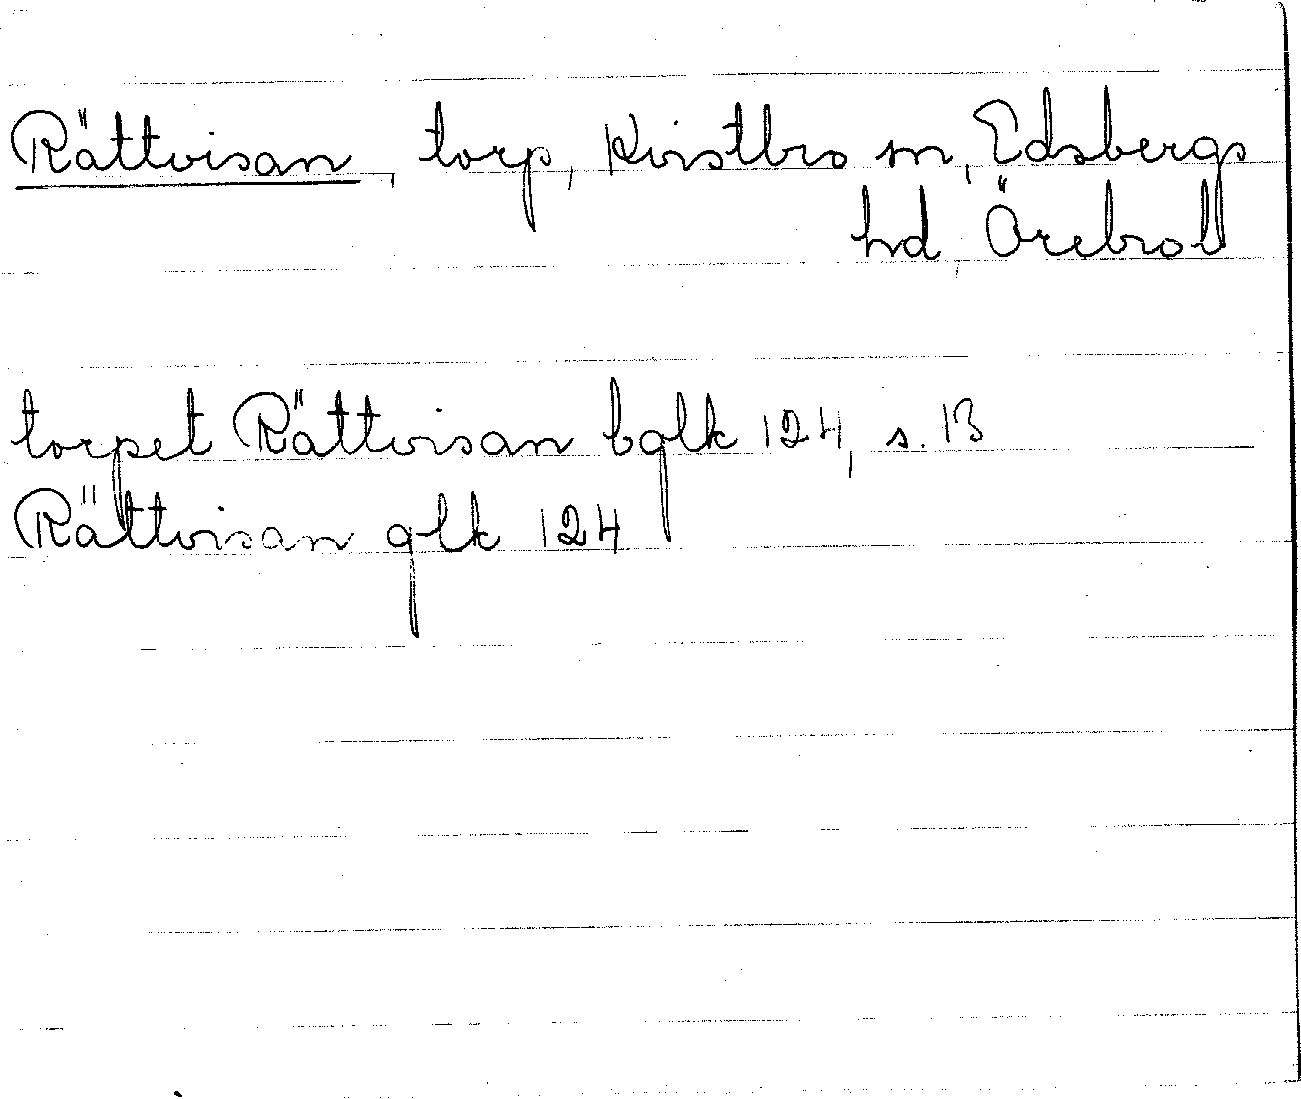 Rättvisan, torp, Kvistbro sn, Edsbergs
hd, Örebro l
torpet Rättvisan bqlk 124, s. 13
Rättvisan qlk 124